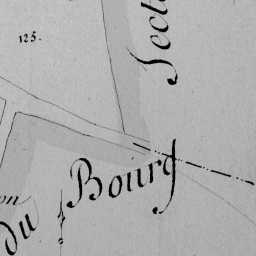 125.
Sect
du Bourg
on